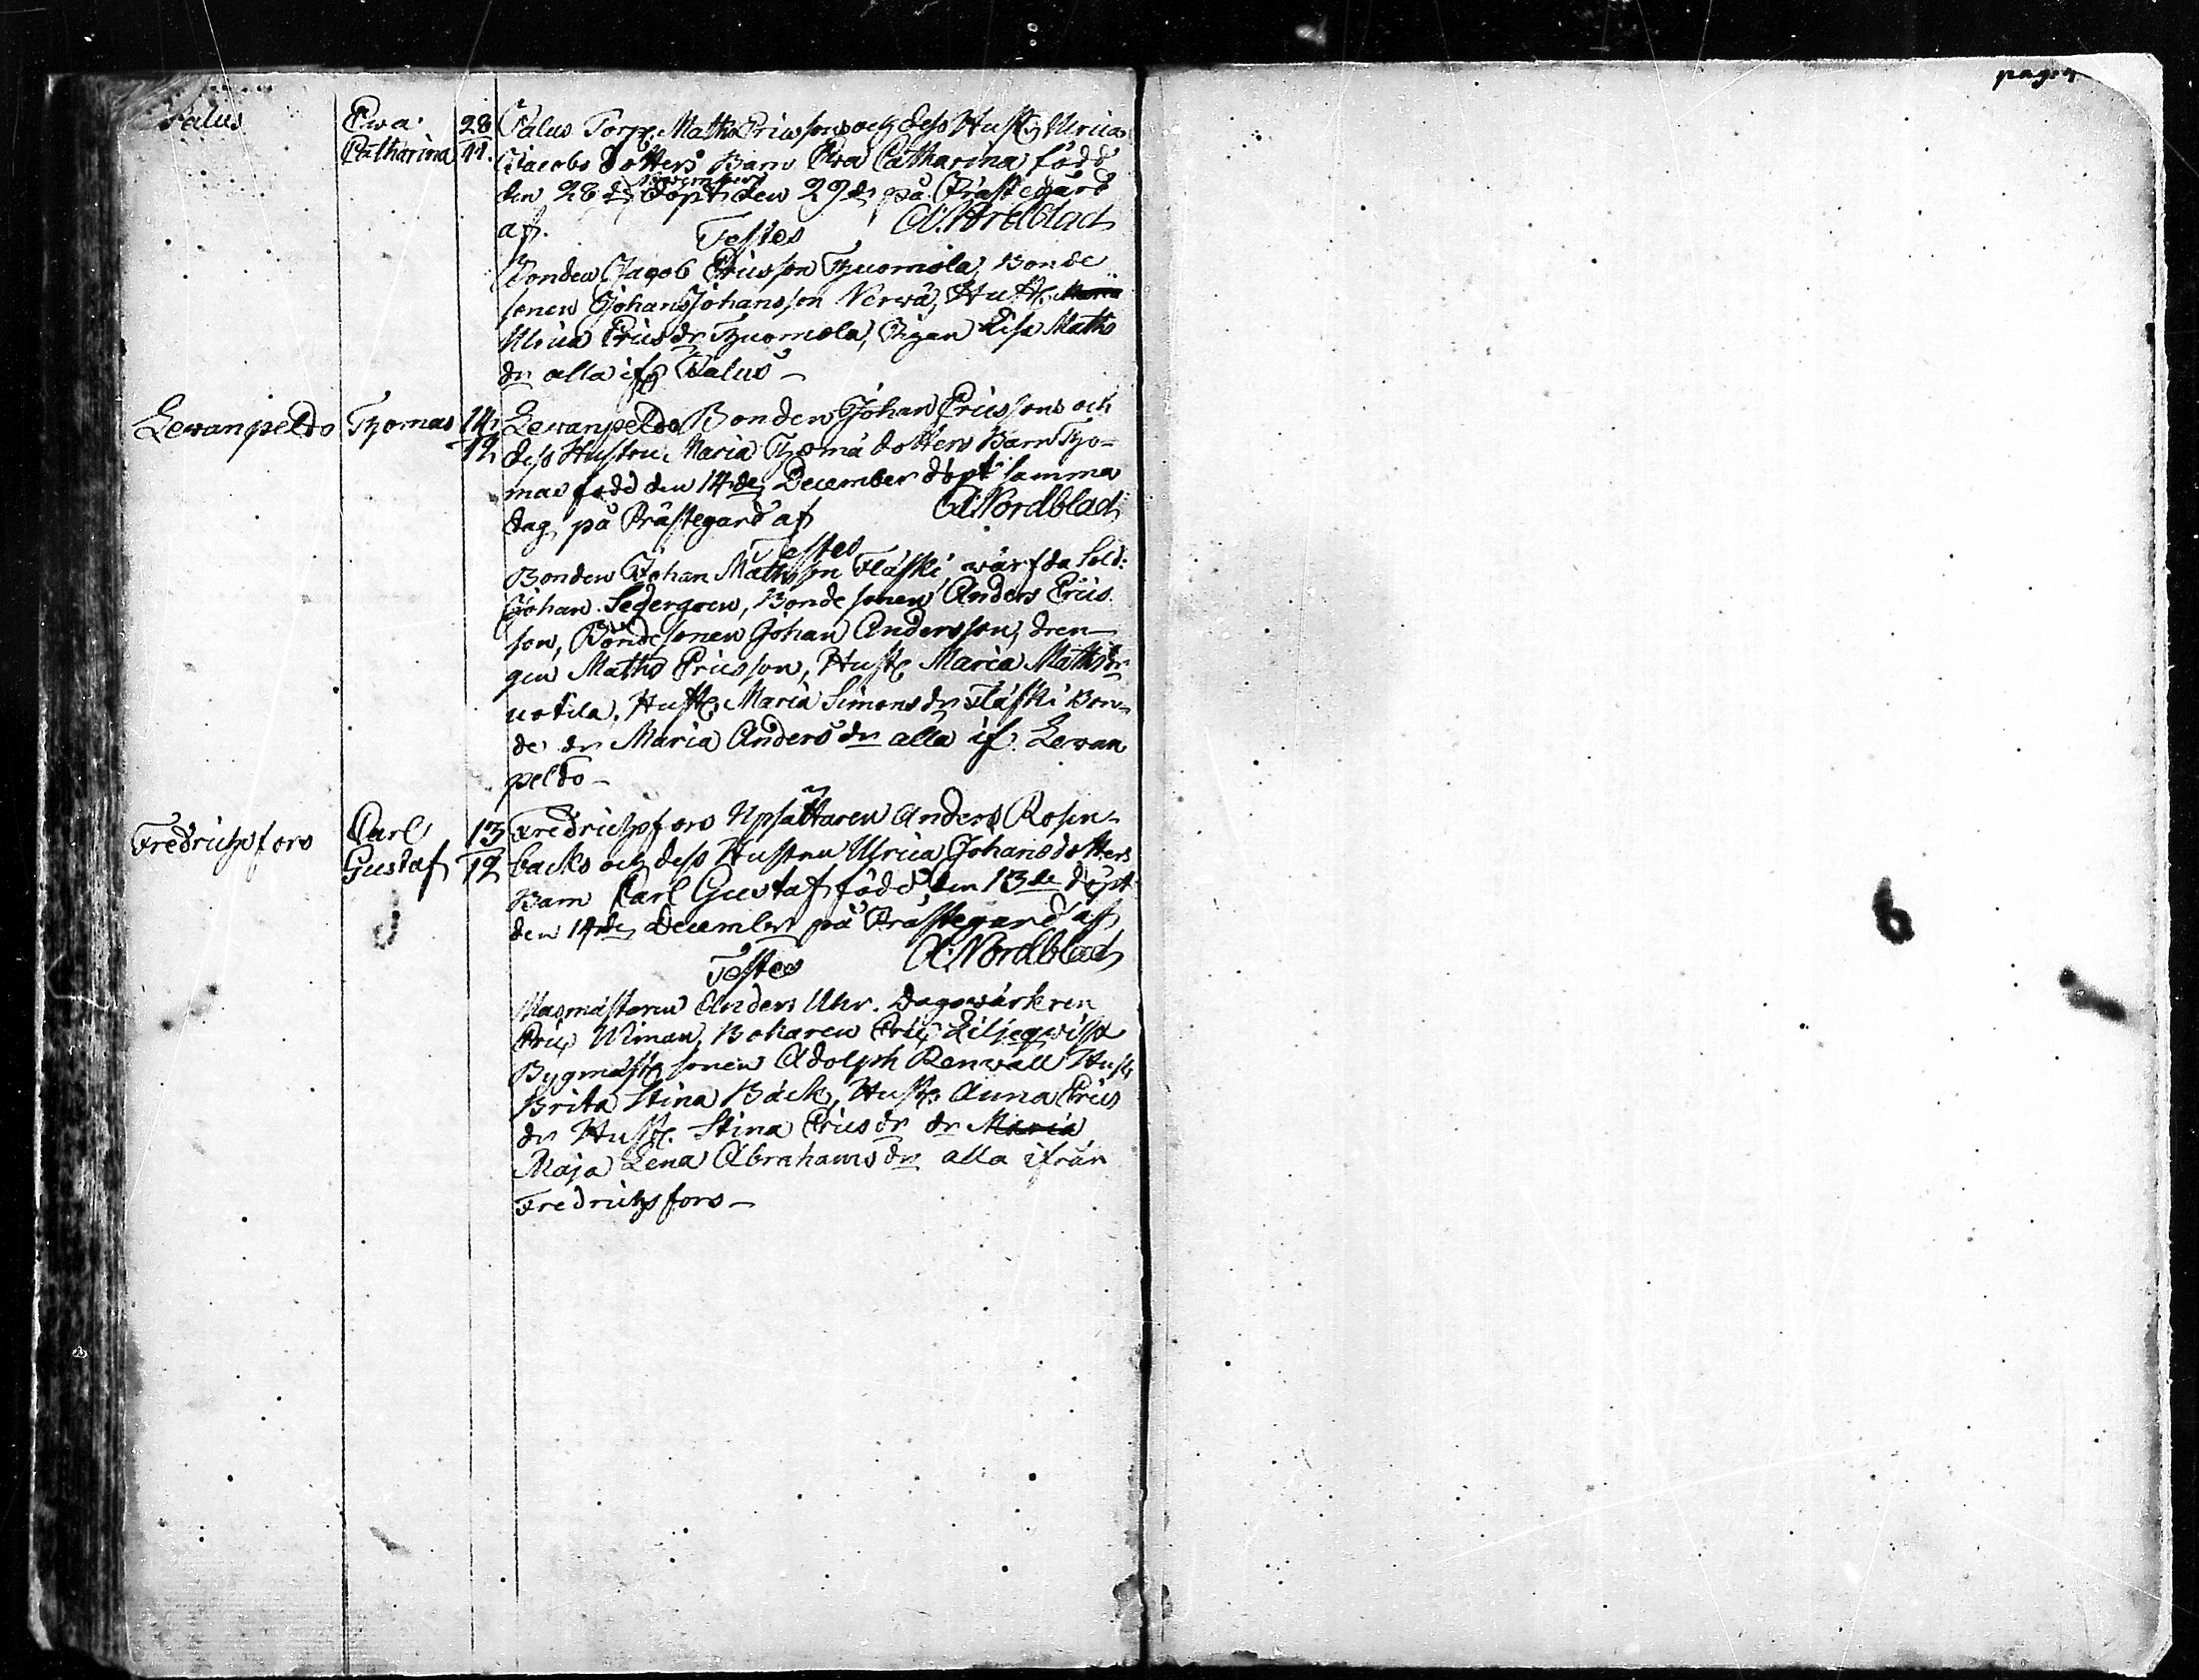 pag:
Palus
Ewa
Catharina
28
11.
Palus Torp. Maths Ericssons och dess Hust. Ulricas
Jacobs dotters Barn Ewa Catharina född
den 28 de November döpt den 29 de på Prästegård
af. A. Nordblad
Testes
Bonden Jacob Ericsson Thuomola, Bonde
sonen Johan Johansson Nerwä, Hust. Maria
Ulrica Ericsdr Thuomola, Pigan Lisa Maths
dr alla ifr. Palus
Lewanpeldo
Thomas
14
12
Lewanpeldo Bonden Johan Ericssons och
dess Hustru Maria Thomä dotters Barn Tho=
mas född den 14de December döpt samma
dag på Prästegård af A: Nordblad
Testes
Bonden Johan Mathsson Fläski wärfda Sold:
Johan Sedergren, Bonde sonen Anders Erics
son, Bonde sonen Johan Andersson, dren—
gen Maths Ericsson, Hust. Maria Mathsdr
uotila, Hust. Maria Simonsdr Fläski Bon=
de dr Maria Andersdr alla if. Lewan
peldo—
Fredrichsfors
Carl
Gustaf
13
12
Fredrichsfors Upsättaren Anders Rosen=
backs och dess Hustru Ulrica Johansdotters
Barn Carl Gustaf född den 13de döpt
den 14de December på Prästegård af
A: Nordblad
Testes
Masmästaren Anders Uhr. Dagswärkren
Eric Wiman, Bokaren Eric Liljeqwist
Bygmäst. sonen Adolph Renwall Hust.
Brita Stina Bäck, Hust. Anna Erics
dr Hust. Stina Ericsdr dr Maria
Maja Lena Abrahamsdr alla ifrån
Fredrichsfors—